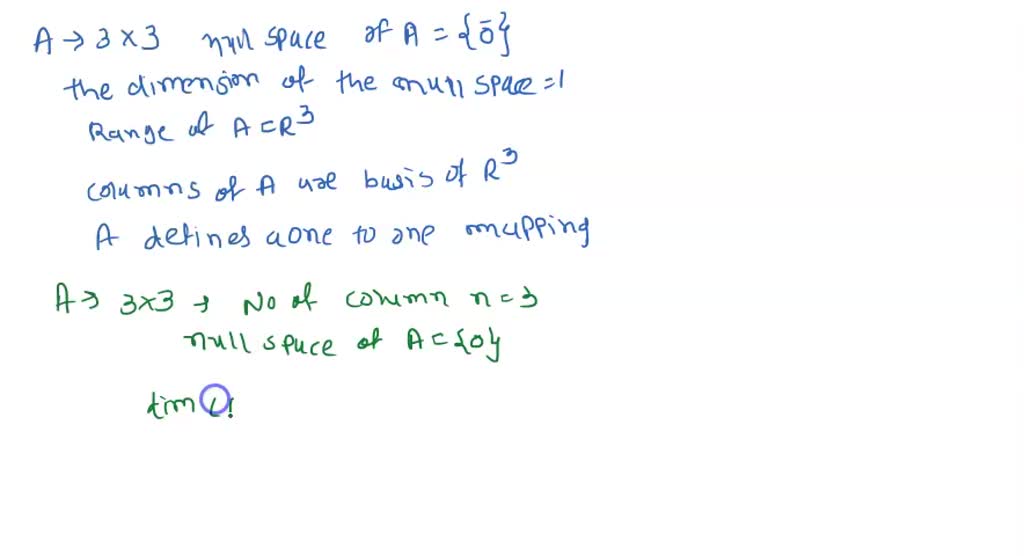 A → 3 × 3 null space of A = {ō}
the dimension of the null space = 1
Range of A = R³
columns of A are basis of R³
A defines a one to one mapping
A → 3×3 → No of column n = 3
null space of A = {0}
dim (